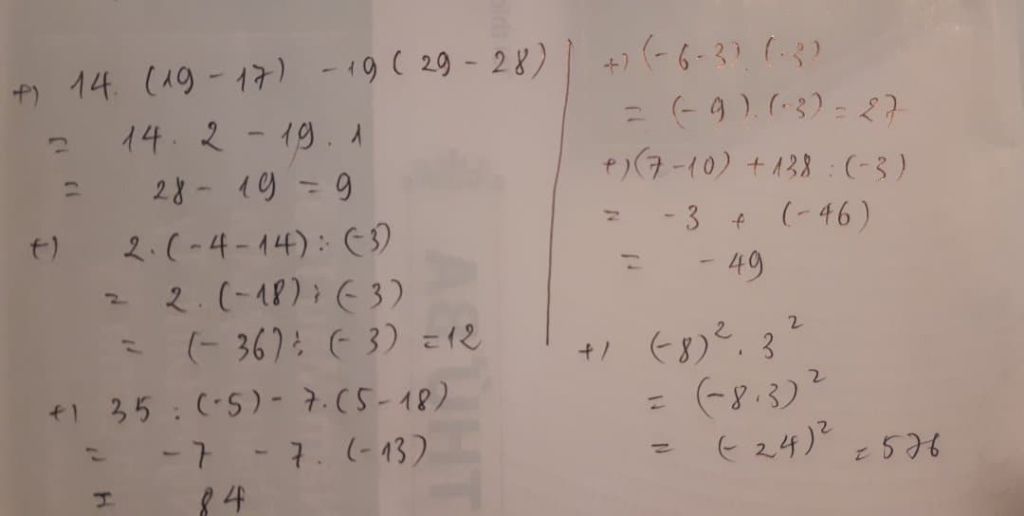 +) 14. (19 - 17) - 19 ( 29 - 28)
= 14. 2 - 19 . 1
= 28 - 19 = 9
+) 2.(-4-14) : (-3)
= 2. (-18) : (-3)
= (-36) : (-3) = 12
+) 35 : (-5) - 7.(5-18)
= -7 - 7. (-13)
= 84
+) (-6-3). (-3)
= (-9).(-3) = 27
+)(7-10) + 138 : (-3)
= -3 + (-46)
= -49
+) (-8)². 3²
= (-8.3)²
= (-24)² = 576